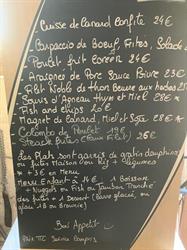 - Cuisse de Canard Confite 24€
- Carpaccio de Boeuf, Frites, Salade
- Poulet frit COREEN 24€
- Araignée de Porc Sauce Poivre 23€
- Filet Noble de Thon Beurre aux herbes
- Souris d'Agneau Thym et Miel 28€ *
- Fish and chips 20€
- Magret de Canard, Miel et Soja 28€ *
- Colombo de Poulet 19€
- Steack frites (Faux Filet) 26€
Les Plats sont garnis de gratin dauphinois
ou frites maison ou riz + légumes
* + 3€ en Menu
Menu Enfant à 14€ 1 Boisson
+ Nuggets ou Fish ou Jambon Blanc
des frites + 1 Dessert (
ou Brownie)
Bon Appétit
Prix TTC Service Compris